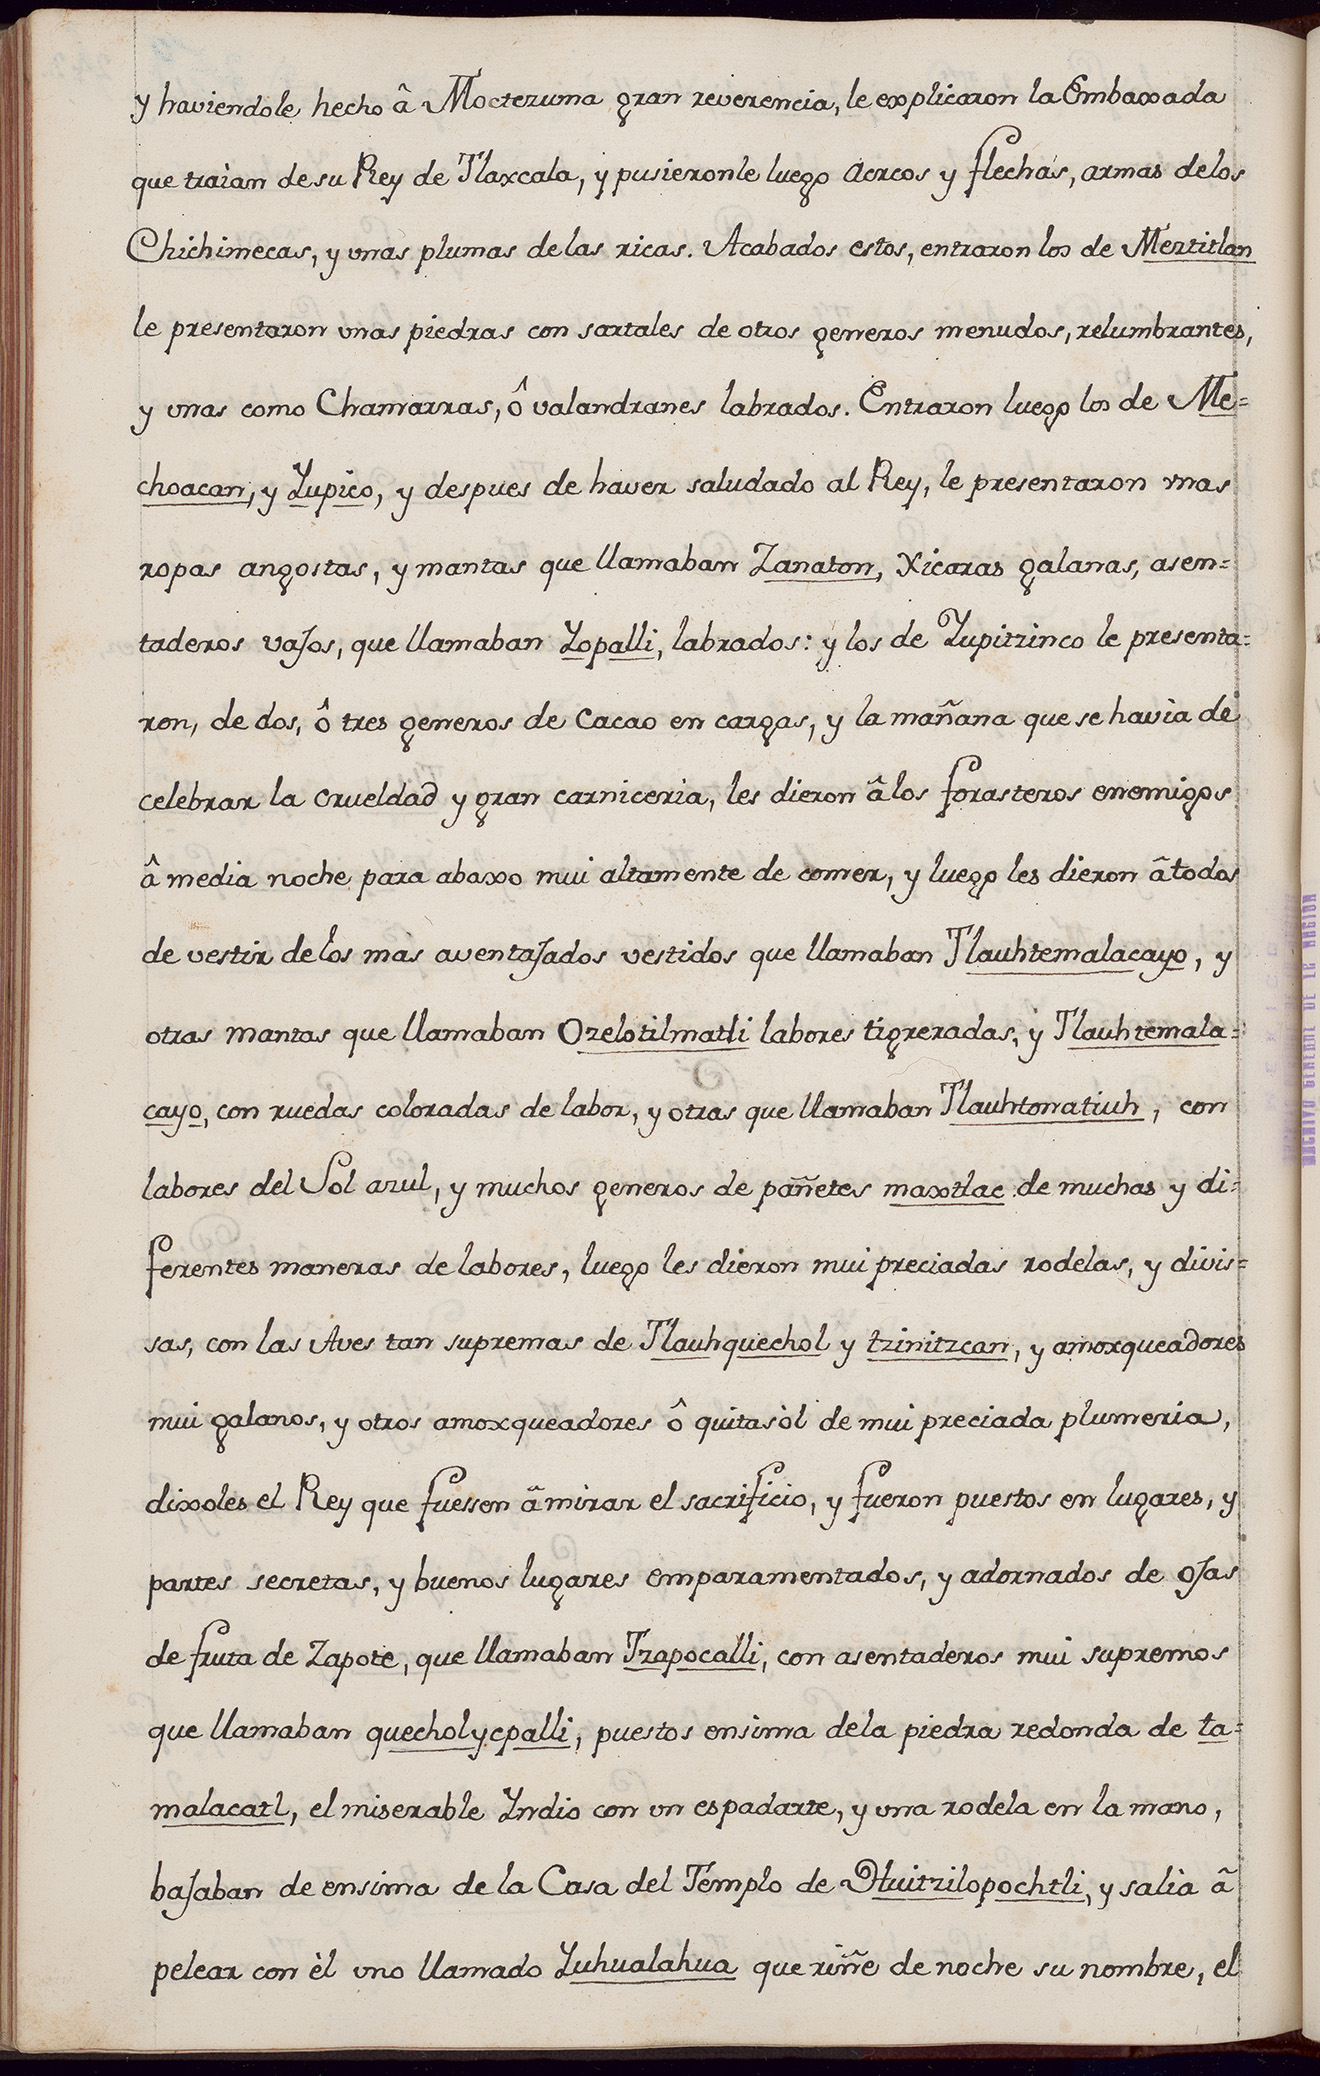 y haviendole hecho â Moctezuma gran reverencia, le explicaron la Embaxada
que traìan de su Rey de Tlaxcala, y pusieronle luego Acrcos y flechas, armas delos
Chichimecas, y vnas plumas de las ricas. Acabados estos, entraron los de Meztitlan
le presentaron vnas piedras con sartales de otros generos menudos, relumbrantes,
y vnas como Chamarras, ô valandranes labrados. Entraron luego los de Me=
choacan, y Yupico, y despues de haver saludado al Rey, le presentaron vnas
ropas angostas, y mantas que llamaban Zanaton, Xicaras galanas, asen=
taderos vajos, que llamaban Yopalli, labrados: y los de Yupitzinco le presenta=
ron, de dos, ô tres generos de Cacao en cargas, y la mañana que se havìa de
celebrar la crueldad y gran carniceria, les dieron â los forasteros enemigos
â media noche para abaxo mui altamente de comer, y luego les dieron â todos
de vestir delos màs aventajados vestidos que llamaban Tlauhtemalacayo, y
otras mantas que llamaban Ozelotilmatli labores tigreradas, y Tlauhtemala=
cayo, con ruedas coloradas de labor, y otras que llamaban Tlauhtonatiuh, con
labores del Sol azul, y muchos generos de pañetes maxtlac de muchas y di=
ferentes maneras de labores, luego les dieron mui preciadas rodelas, y divis=
sas, con las Aves tan supremas de Tlauhquechol y tzinitzcan, y amoxqueadores
mui galanos, y otros amoxqueadores ô quitasòl de mui preciada plumeria,
dixoles el Rey que fuessen â mirar el sacrificio, y fueron puestos en lugares, y
partes secretas, y buenos lugares emparamentados, y adornados de ojas
de fruta de Zapote, que llamaban Tzapocalli, con asentaderos mui supremos
que llamaban quecholycpalli, puestos ensima dela piedra redonda de ta=
malacatl, el miserable Yndio con un espadarte, y vna rodela en la mano,
bajaban de ensima de la Casa del Templo de Huitzilopochtli, y salìa â
pelear con èl vno llamado Yuhualahua que riñe de noche su nombre, el
ARCHIVO GENERAL DE LA NACION